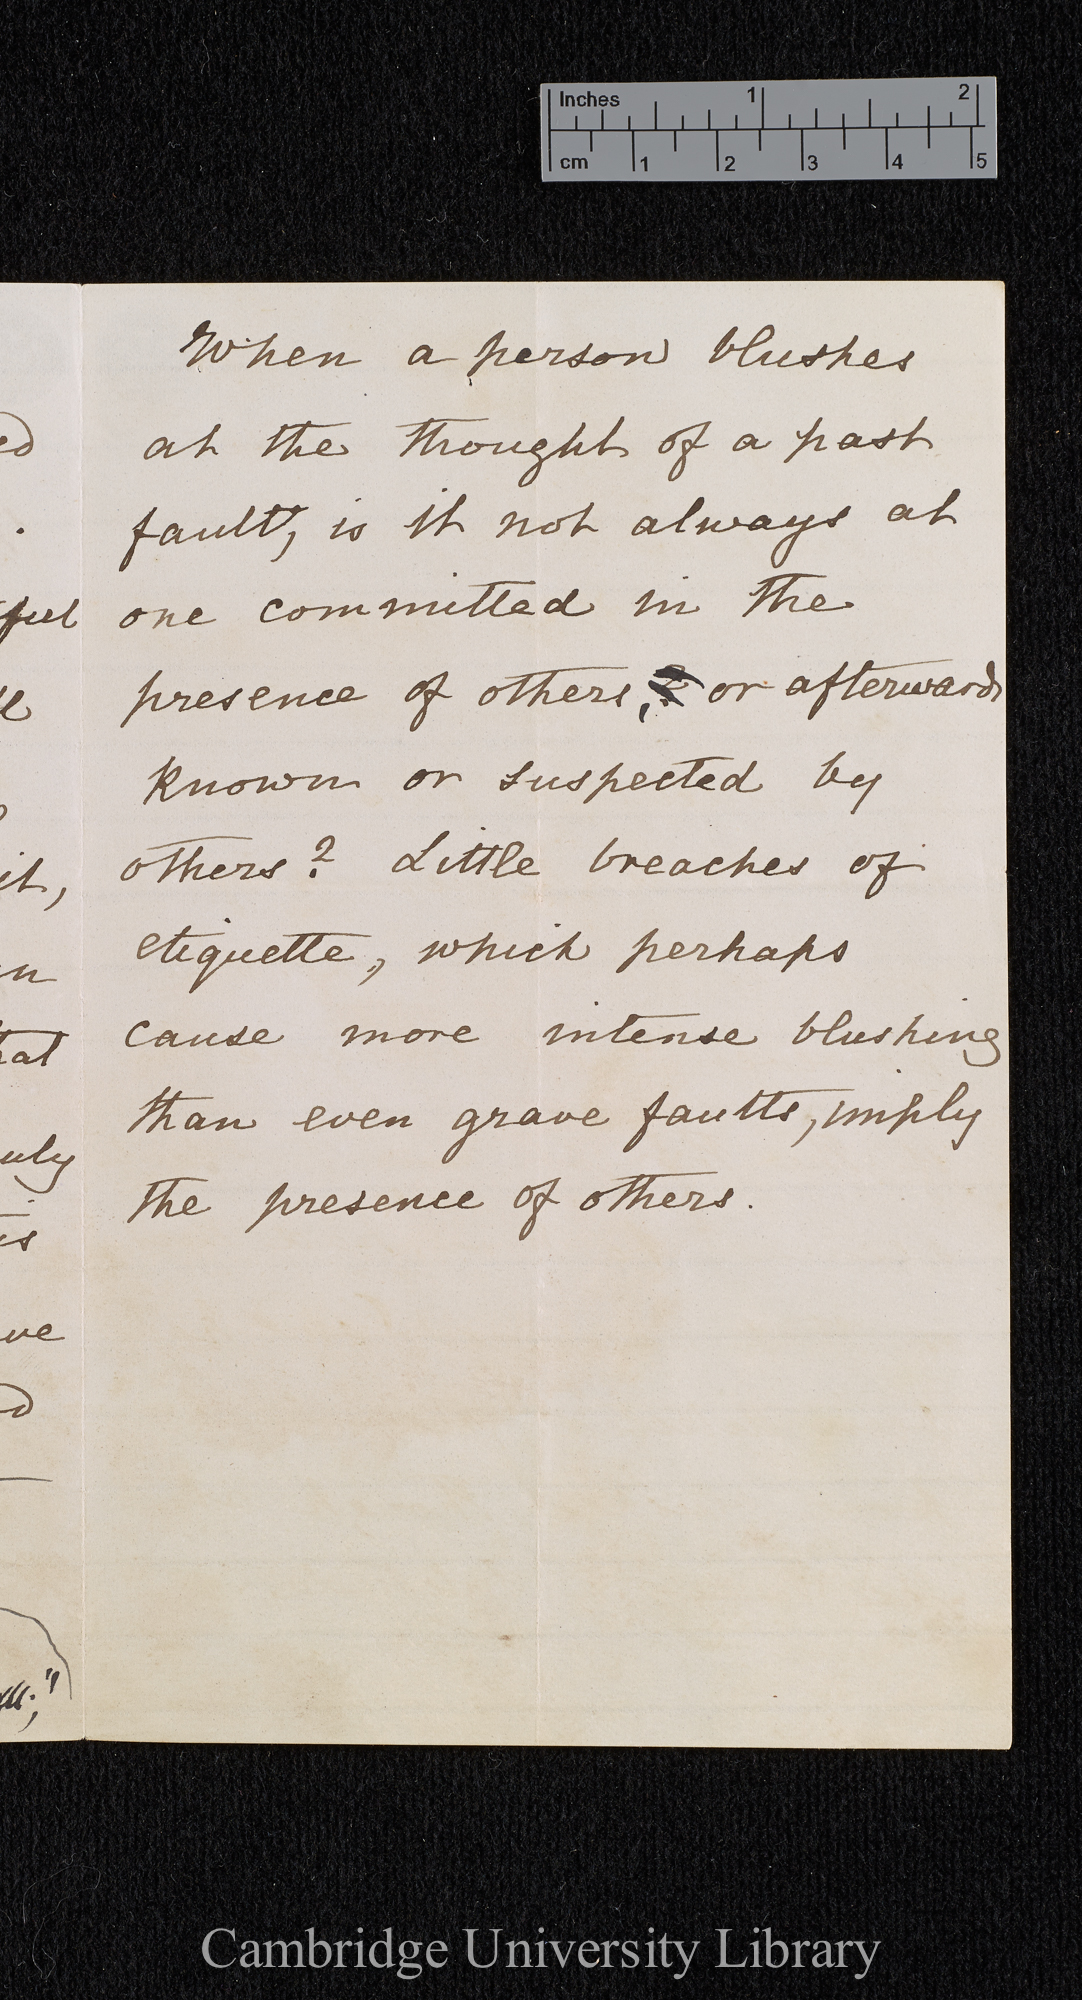 Inches 1 2
cm 1 2 3 4 5
When a person blushes
at the thought of a past
fault, is it not always at
one committed in the
presence of others, or afterwards
known or suspected by
others? Little breaches of
etiquette, which perhaps
cause more intense blushing
than even grave faults, imply
the presence of others.
Cambridge University Library